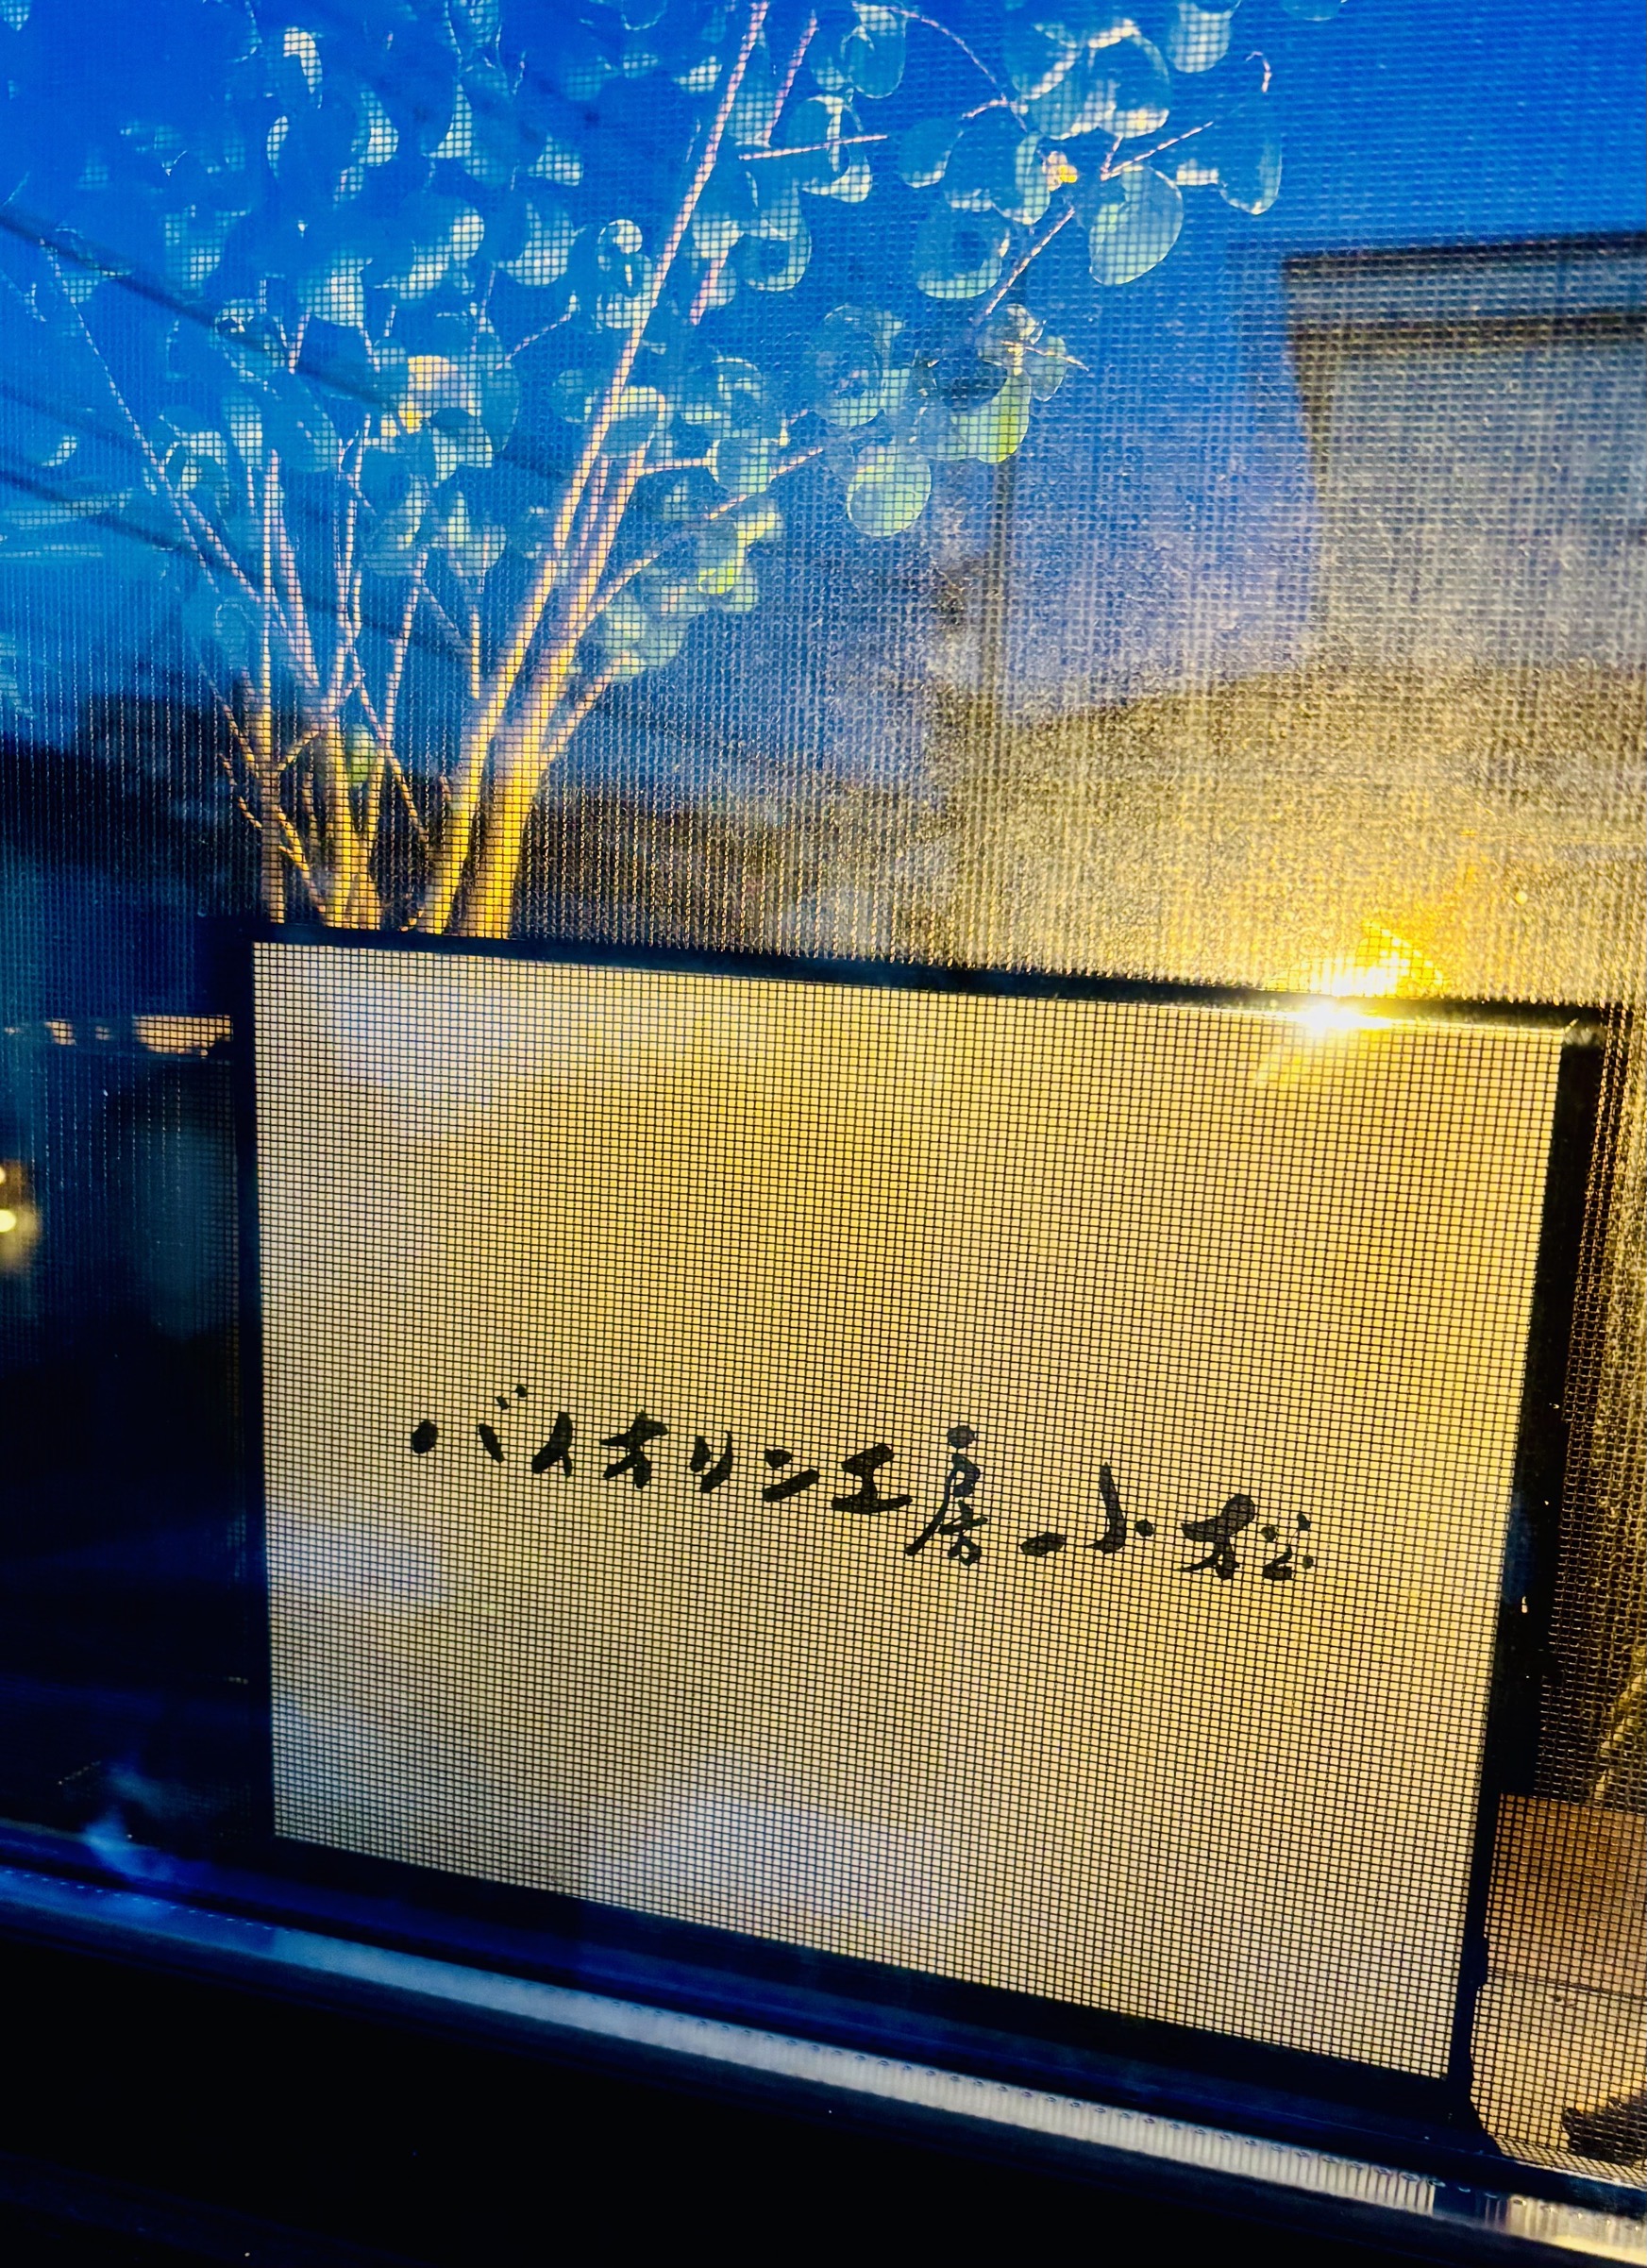 バイオリン工房 小松